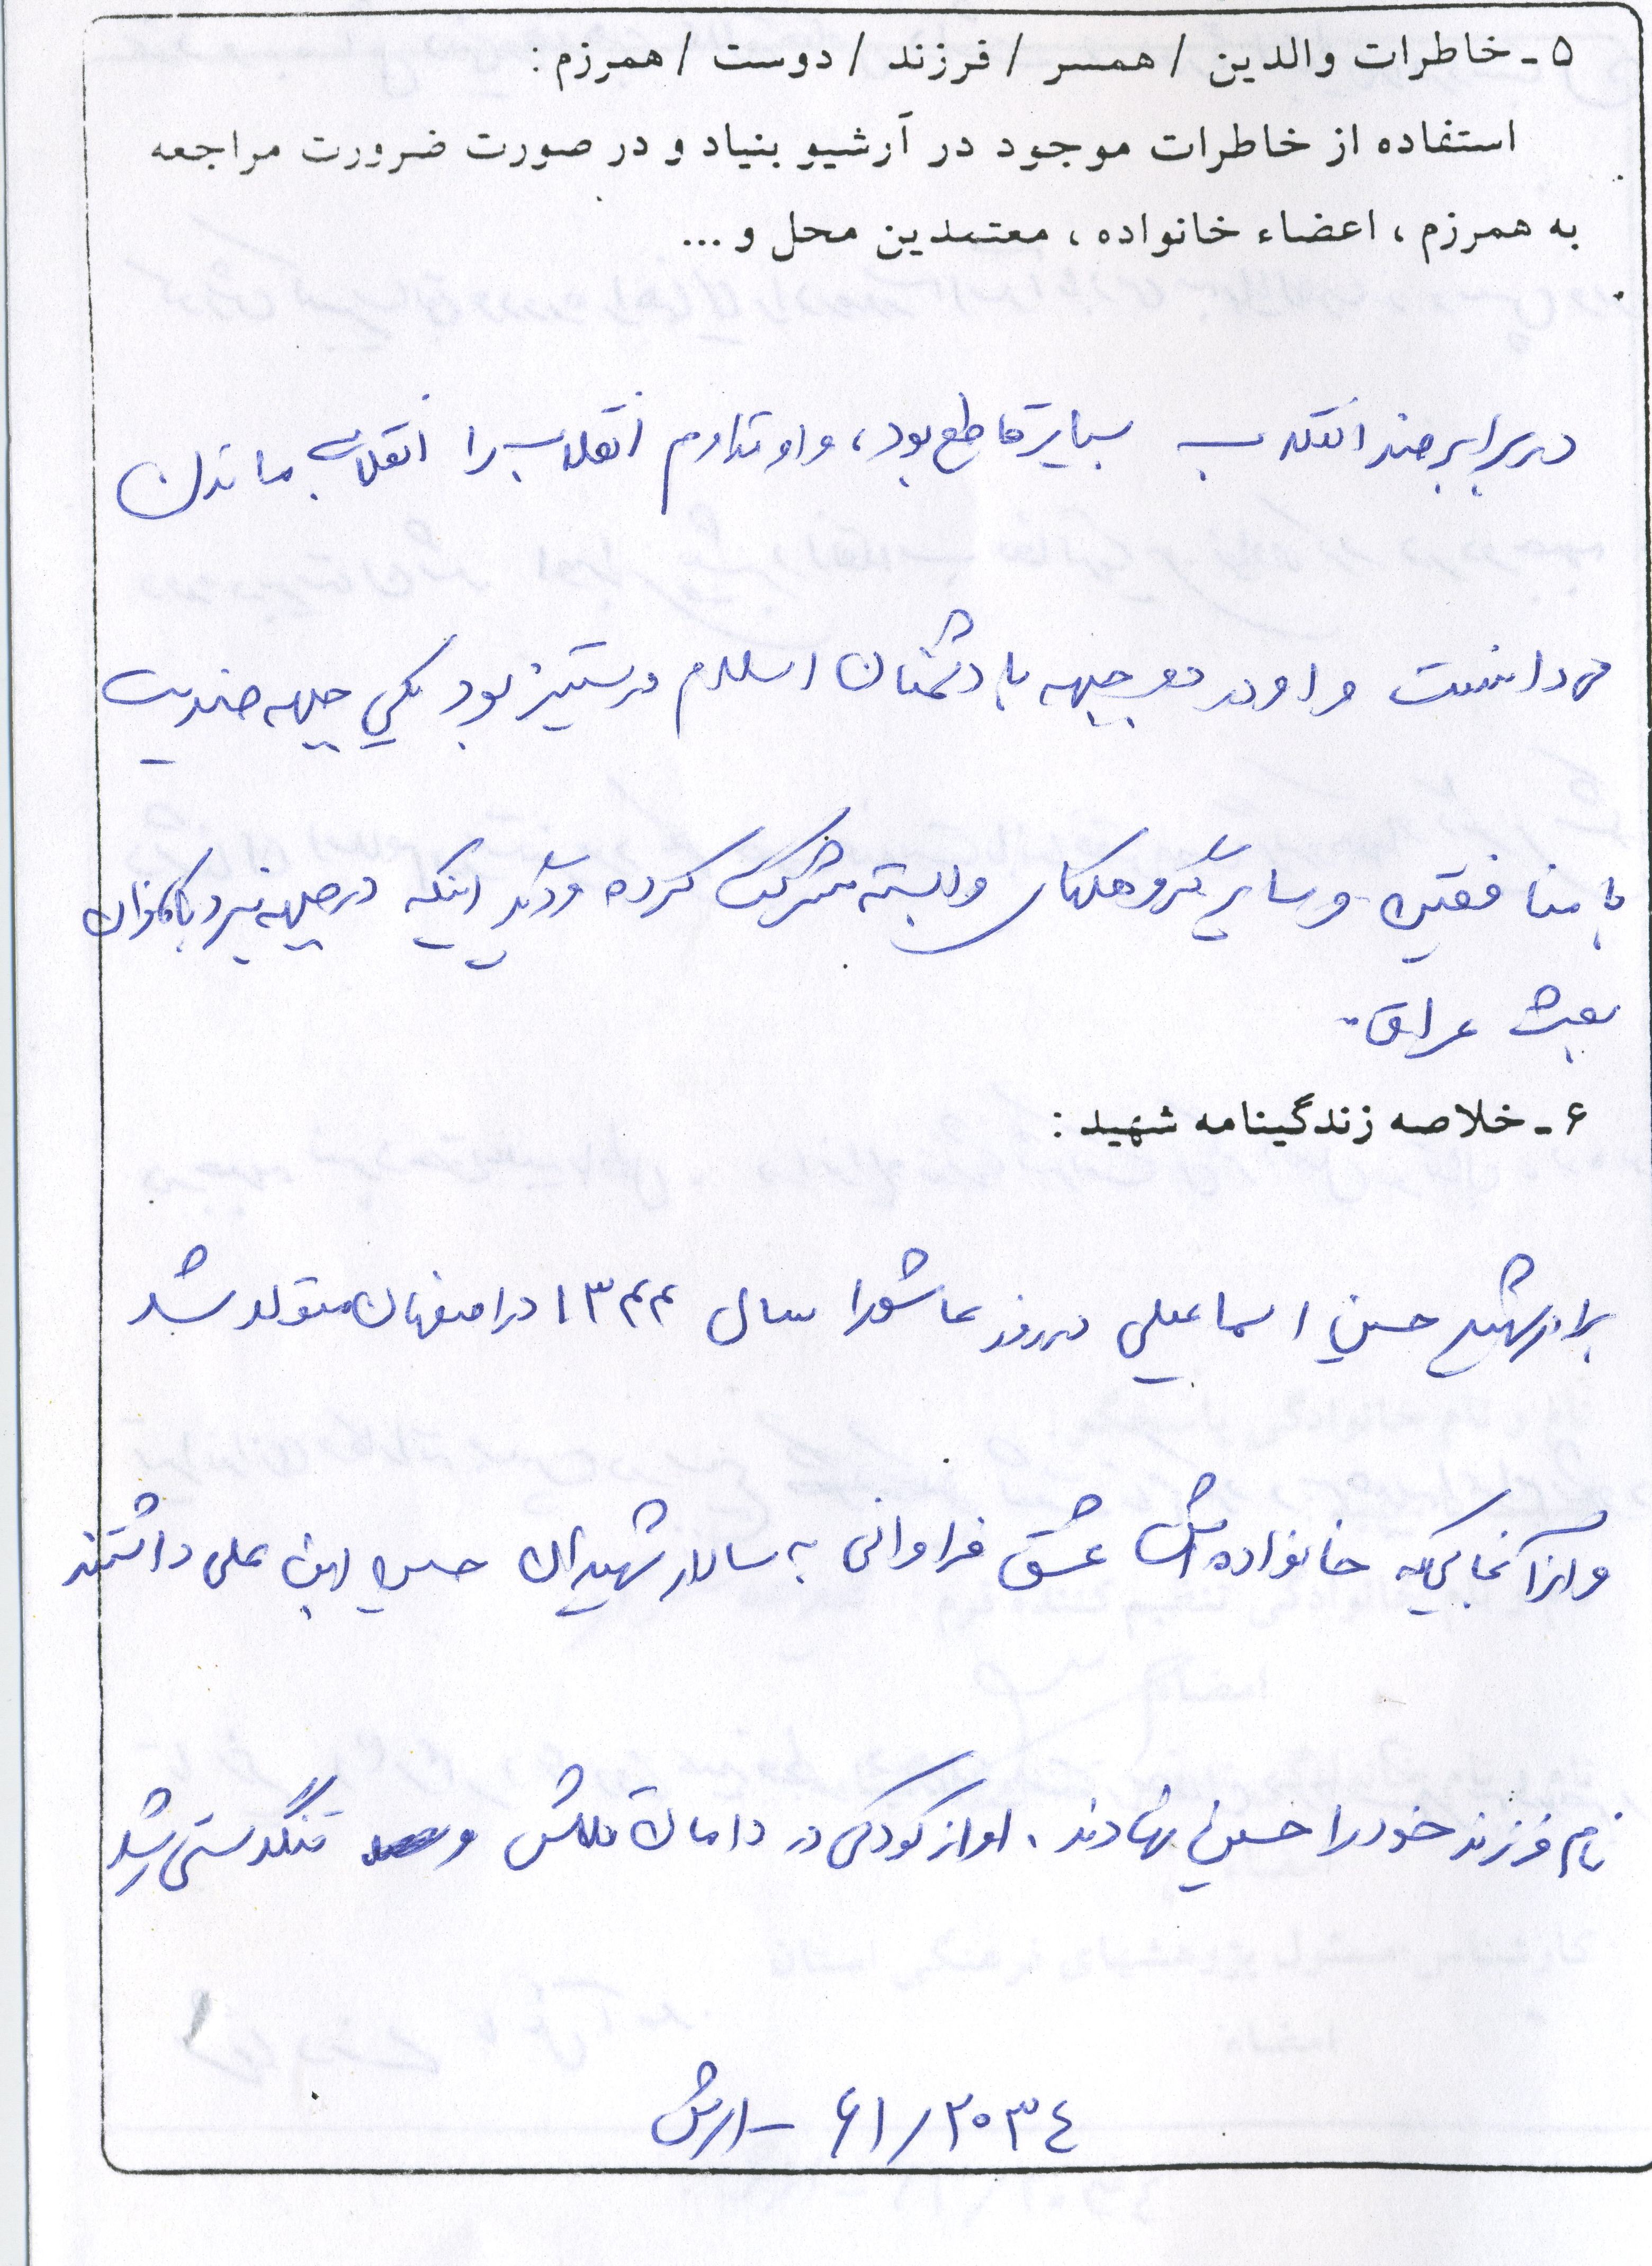 ۵ ـ خاطرات والدین / همسر / فرزند / دوست / همرزم :
استفاده از خاطرات موجود در آرشیو بنیاد و در صورت ضرورت مراجعه
به همرزم ، اعضاء خانواده ، معتمدین محل و ...
در برابر ضد انقلاب بسیار قاطع بود، و او تداوم انقلاب را انقلابی ماندن
می دانست و او در دو جبهه با دشمنان اسلام در ستیز بود یکی جبهه ضدیت
با منافقین و سایر گروهکهای وابسته شرکت کرده و دیگر اینکه در جبهه نبرد با کافران
بعث عراق.
۶ ـ خلاصه زندگینامه شهید :
برادر شهید حسین اسماعیلی در روز عاشورا سال ۱۳۴۴ در اصفهان متولد شد
و از آنجایی که خانواده اش عشق فراوانی به سالار شهیدان حسین ابن علی داشتند
نام فرزند خود را حسین نهادند . او از کودکی در دامان تلاش و تنگدستی رشد
۶۱/۲۰۳۴ - ارتش